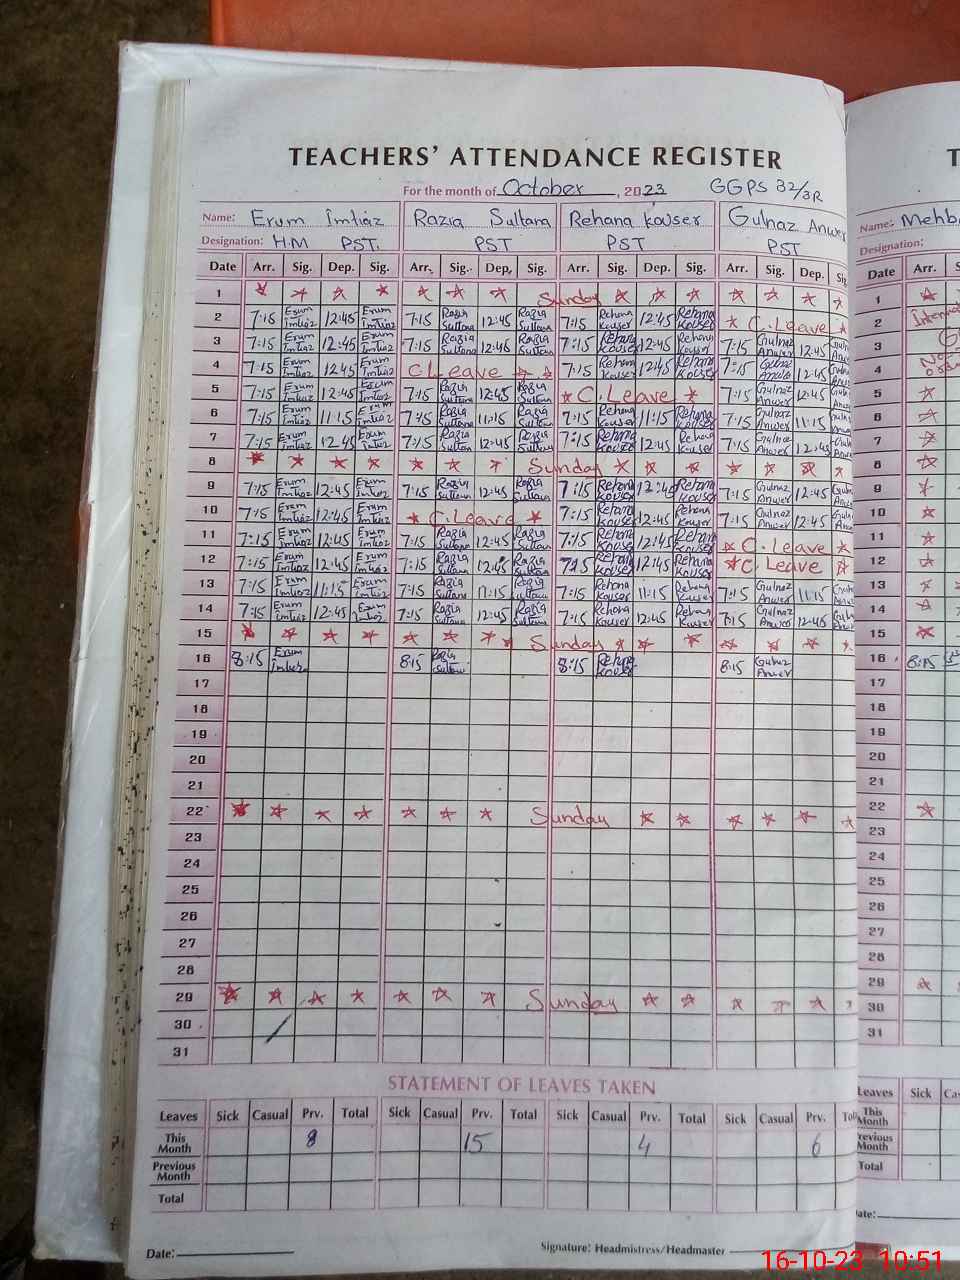 TEACHERS' ATTENDANCE REGISTER
For the month of October, 2023 GGPS 32/3R
Name: Erum Imtiaz Razia Sultana Rehana Kouser Gulnaz Anwer Name:
Designation: H.M PST. PST PST PST Designation:
Date Arr. Sig. Dep. Sig. Arr. Sig. Dep. Sig. Arr. Sig. Dep. Sig. Arr. Sig. Dep. Sig. Date Arr.
1 Sunday 1
2 7:15 Erum Imtiaz 12:45 Erum Imtiaz 7:15 Razia Sultana 12:45 Razia Sultana 7:15 Rehana Kouser 12:45 Rehana Kouser C.Leave 2
3 7:15 Erum Imtiaz 12:45 Erum Imtiaz 7:15 Razia Sultana 12:45 Razia Sultana 7:15 Rehana Kouser 12:45 Rehana Kouser 7:15 Gulnaz Anwer 12:45 3
4 7:15 Erum Imtiaz 12:45 Erum Imtiaz C Leave 7:15 Rehana Kouser 12:45 Rehana Kouser 7:15 Gulnaz Anwer 12:45 4
5 7:15 Erum Imtiaz 12:45 Erum Imtiaz 7:15 Razia Sultana 12:45 Razia Sultana C.Leave 7:15 Gulnaz Anwer 12:45 5
6 7:15 Erum Imtiaz 11:15 Erum Imtiaz 7:15 Razia Sultana 11:15 Razia Sultana 7:15 Rehana Kouser 11:15 Rehana Kouser 7:15 Gulnaz Anwer 11:15 6
7 7:15 Erum Imtiaz 12:45 Erum Imtiaz 7:15 Razia Sultan 12:45 Razia Sultan 7:15 Rehana Kouser 12:45 Rehana Kouser 7:15 Gulnaz Anwer 12:45 7
8 Sunday 8
9 7:15 Erum Imtiaz 12:45 Erum Imtiaz 7:15 Razia Sultana 12:45 Razia Sultana 7:15 Rehana Kouser 12:45 Rehana Kouser 7:15 Gulnaz Anwer 12:45 9
10 7:15 Erum Imtiaz 12:45 Erum Imtiaz C.Leave 7:15 Rehana Kouser 12:45 Rehana Kouser 7:15 Gulnaz Anwer 12:45 10
11 7:15 Erum Imtiaz 12:45 Erum Imtiaz 7:15 Razia Sultana 12:45 Razia Sultana 7:15 Rehana Kouser 12:45 Rehana Kouser C.Leave 11
12 7:15 Erum Imtiaz 12:45 Erum Imtiaz 7:15 Razia Sultana 12:45 Razia Sultana 7:15 Rehana Kouser 12:45 Rehana Kouser C.Leave 12
13 7:15 Erum Imtiaz 11:15 Erum Imtiaz 7:15 Razia Sultana 11:15 Razia Sultana 7:15 Rehana Kouser 11:15 Rehana Kouser 7:15 Gulnaz Anwer 11:15 13
14 7:15 Erum Imtiaz 12:45 Erum Imtiaz 7:15 Razia Sultana 12:45 Razia Sultana 7:15 Rehana Kouser 12:45 Rehana Kouser Gulnaz Anwer 12:45 14
15 Sunday 15
16 8:15 Erum Imtiaz 8:15 Razia Sultana 8:15 Rehana Kouser 8:15 Gulnaz Anwer 16 8:15
17 17
18 18
19 19
20 20
21 21
22 Sunday 22
23 23
24 24
25 25
26 26
27 27
28 28
29 Sunday 29
30 30
31 31
STATEMENT OF LEAVES TAKEN
Leaves Sick Casual Prv. Total Sick Casual Prv. Total Sick Casual Prv. Total Sick Casual Prv. Leaves Sick
This Month 8 15 4 6 This Month
Previous Month
Total Total
Date: Signature: Headmistress/Headmaster
16-10-23 10:51